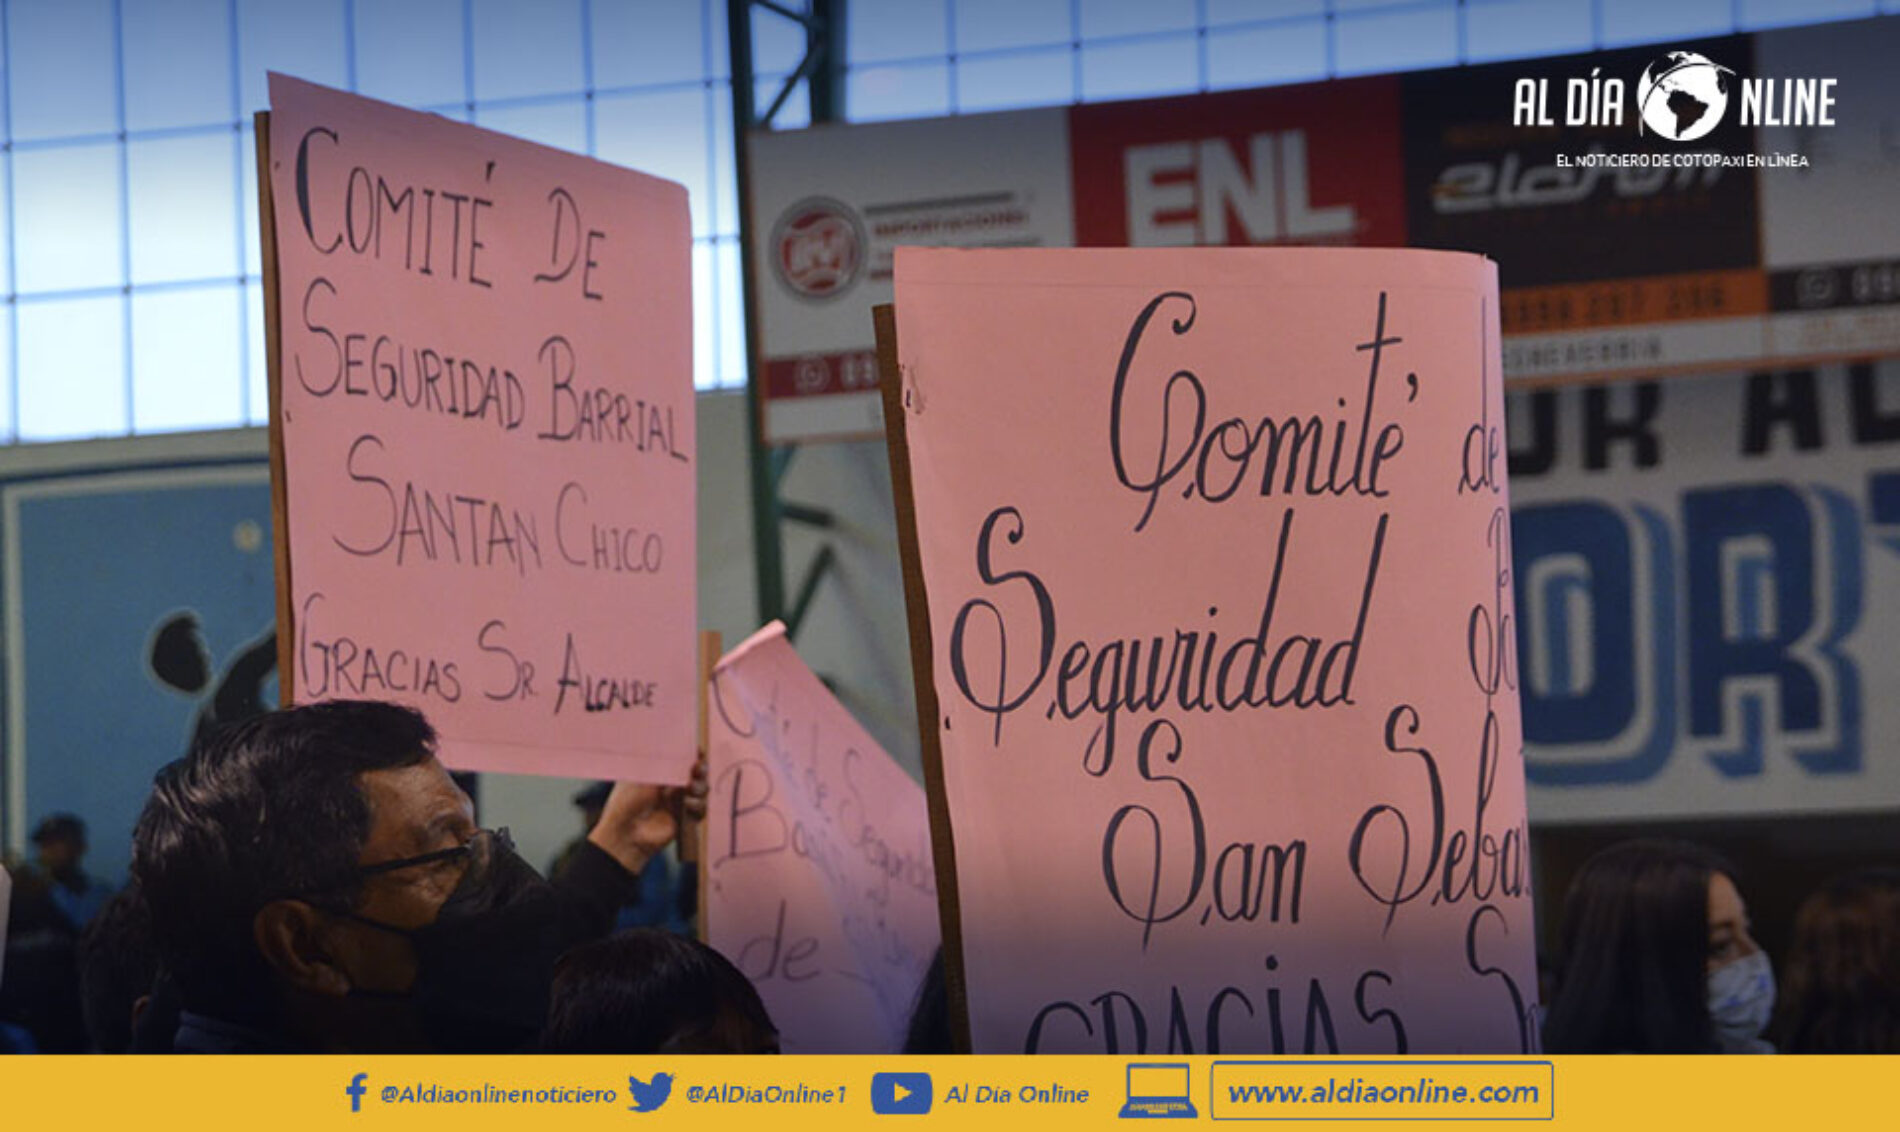 AL DÍA ONLINE
EL NOTICIERO DE COTOPAXI EN LÍNEA
COMITÉ DE
SEGURIDAD BARRIAL
SANTAN CHICO
GRACIAS SR ALCALDE
Comité de
Seguridad
San Seba
GRACIAS S
de
ENL
IMPORTACIONES
OR
@Aldiaonlinenoticiero
@AlDiaOnline1
Al Día Online
www.aldiaonline.com